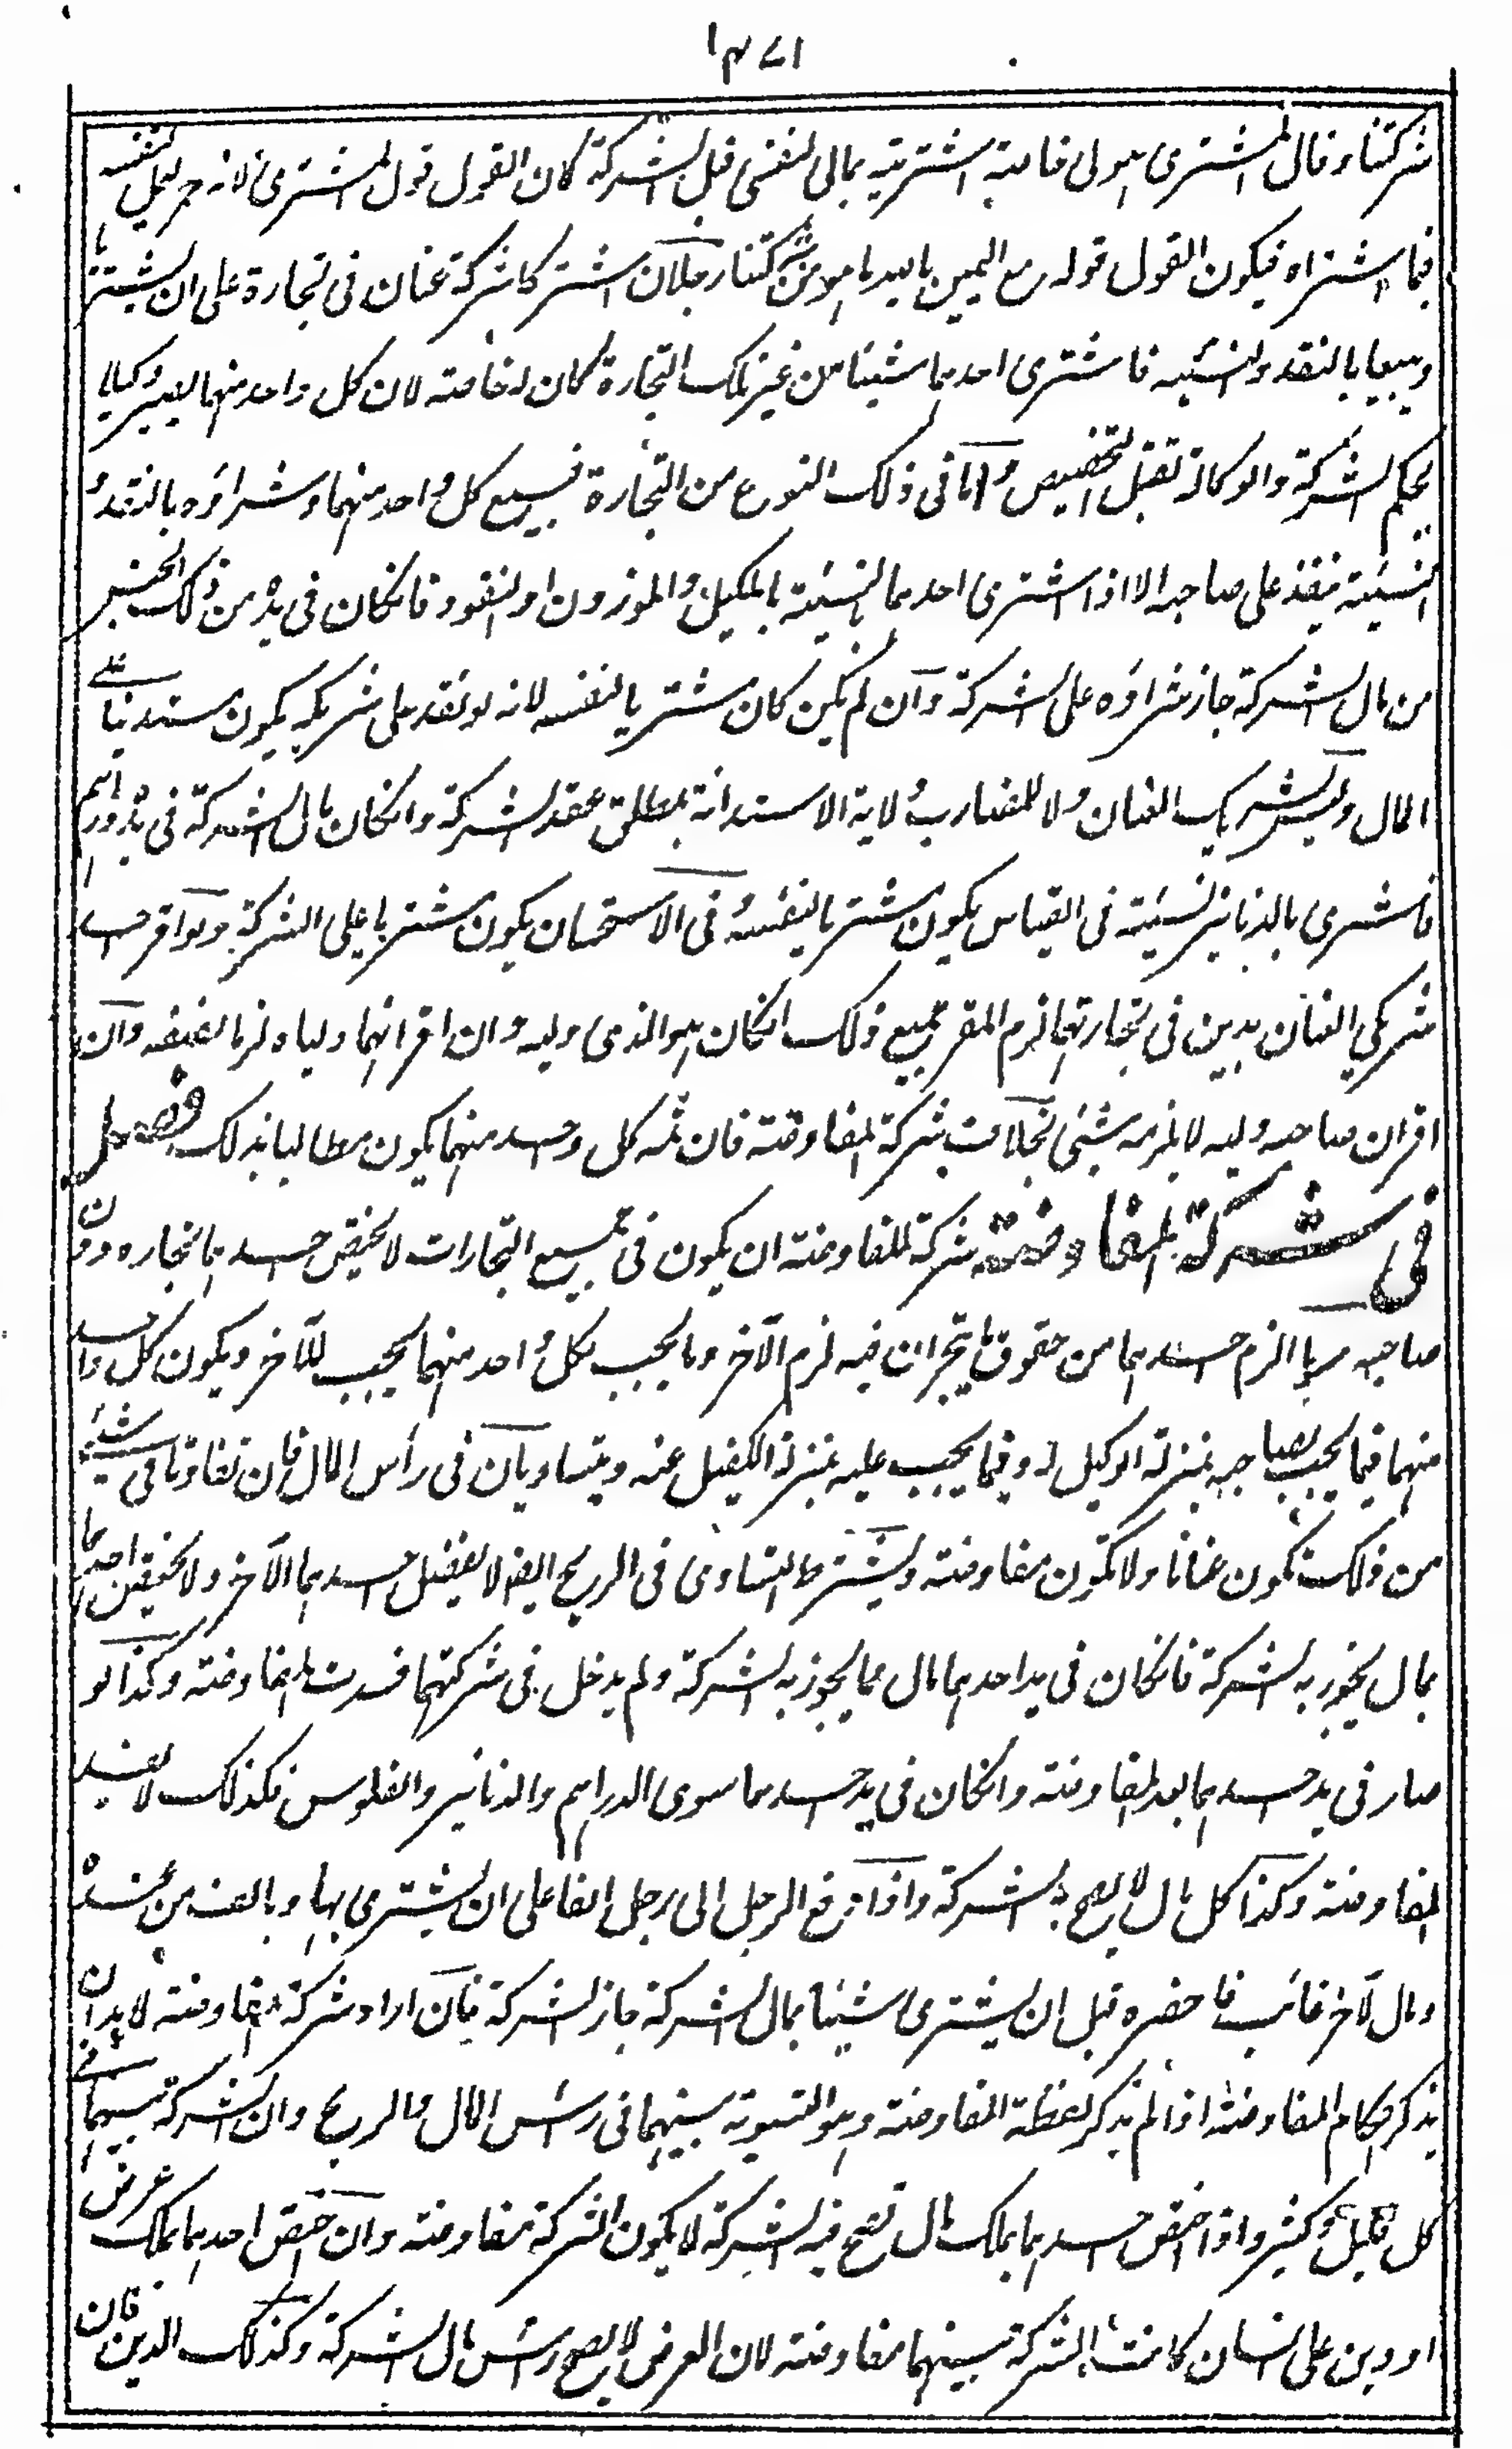 ١٣٧١
شركتنا وقال المشترى هو لى خاصة اشتريته بمالى لنفسى قبل الشركة كان القول قول المشترى لانه حر يعمل لنفسه
فيما اشتراه فيكون القول قوله مع اليمين بالله ما هو من شركتنا رجلان اشتركا شركة عنان فى تجارة على ان يشتريا
ويبيعا بالنقد والنسيئه فاشترى احدهما شيئا من غير تلك التجارة كان له خاصته لان كل واحد منهما يصير وكيلا
بحكم الشركة والوكالة تقبل التخصيص واما فى ذلك النوع من التجارة فبيع كل واحد منهما وشراؤه بالنقد و
النسيئته ينفذ على صاحبه الا اذا اشترى احدهما بالنسيئة بالمكيل والموزون او النقود فانكان فى يده من ذلك الجنس
من مال الشركة جاز شراؤه على الشركة وان لم يكن كان مشتريا لنفسه لانه لو نفذ على شريكه يكون مستدينا على
المال وليس لشريك العنان ولا للمضارب ولاية الاستدانة بمطلق عقد الشركة وانكان مال الشركة فى يده دراهم
فاشترى بالدنانير نسيئته فى القياس يكون مشتريا لنفسه وفى الاستحسان يكون مشتريا على الشركة ولو اقر احد
شريكي العنان بدين فى تجارتهما لزم المقر جميع ذلك انكان هو الذى وليه وان اقر انهما ولياه لزمه نصفه وان
اقر ان صاحبه وليه لا يلزمه شيئ بخلاف شركة المفاوضته فان ثمه كل واحد منهما يكون مطالبا بذلك فصل
فى شركة المفاوضة شركة المفاوضته ان يكون فى جميع التجارات لا يختص احدهما بتجاره دون
صاحبه وما لزم احدهما من حقوق ما يتجران فيه لزم الآخر وما يجب لكل واحد منهما يجب للآخر ويكون كل واحد
منهما فيما يجب لصاحبه بمنزلة الوكيل له وفيما يجب عليه بمنزلة الكفيل عنه ويتساويان فى رأس المال فان تفاوتا فى شئ
من ذلك تكون عنانا ولا تكون مفاوضته ويشترط التساوى فى الربح ايضا لا يفضل احدهما الآخر ولا يختص احدهما
بمال يجوز به الشركة فانكان فى يد احدهما مال مما يجوز به الشركة ولم يدخل فى شركتهما فسدت المفاوضته وكذا لو
صار فى يد احدهما بعد المفاوضته وانكان فى يد احدهما سوى الدراهم والدنانير والفلوس فكذلك لا يفسد
المفاوضته وكذا كل مال لا يصح به الشركة واذا دفع الرجل الى رجل الفا على ان يشترى بها وبالف من عنده
ومال لآخر غائب فاحضره قبل ان يشترى شيئا بمال الشركة جاز الشركة فان اراد شركة المفاوضته لا بد ان
يذكر احكام المفاوضة اذا لم يذكر لفظة المفاوضته وهو التسوية بينهما فى رأس المال والربح وان الشركة بينهما فى
كل قليل وكثير واذا اختص احدهما بملك مال تصح فيه الشركة لا يكون الشركة مفاوضته وان اختص احدهما بملك عرض
او دين على انسان كانت الشركة بينهما مفاوضته لان العرض لا يصح رأس مال الشركة وكذلك الدين فان